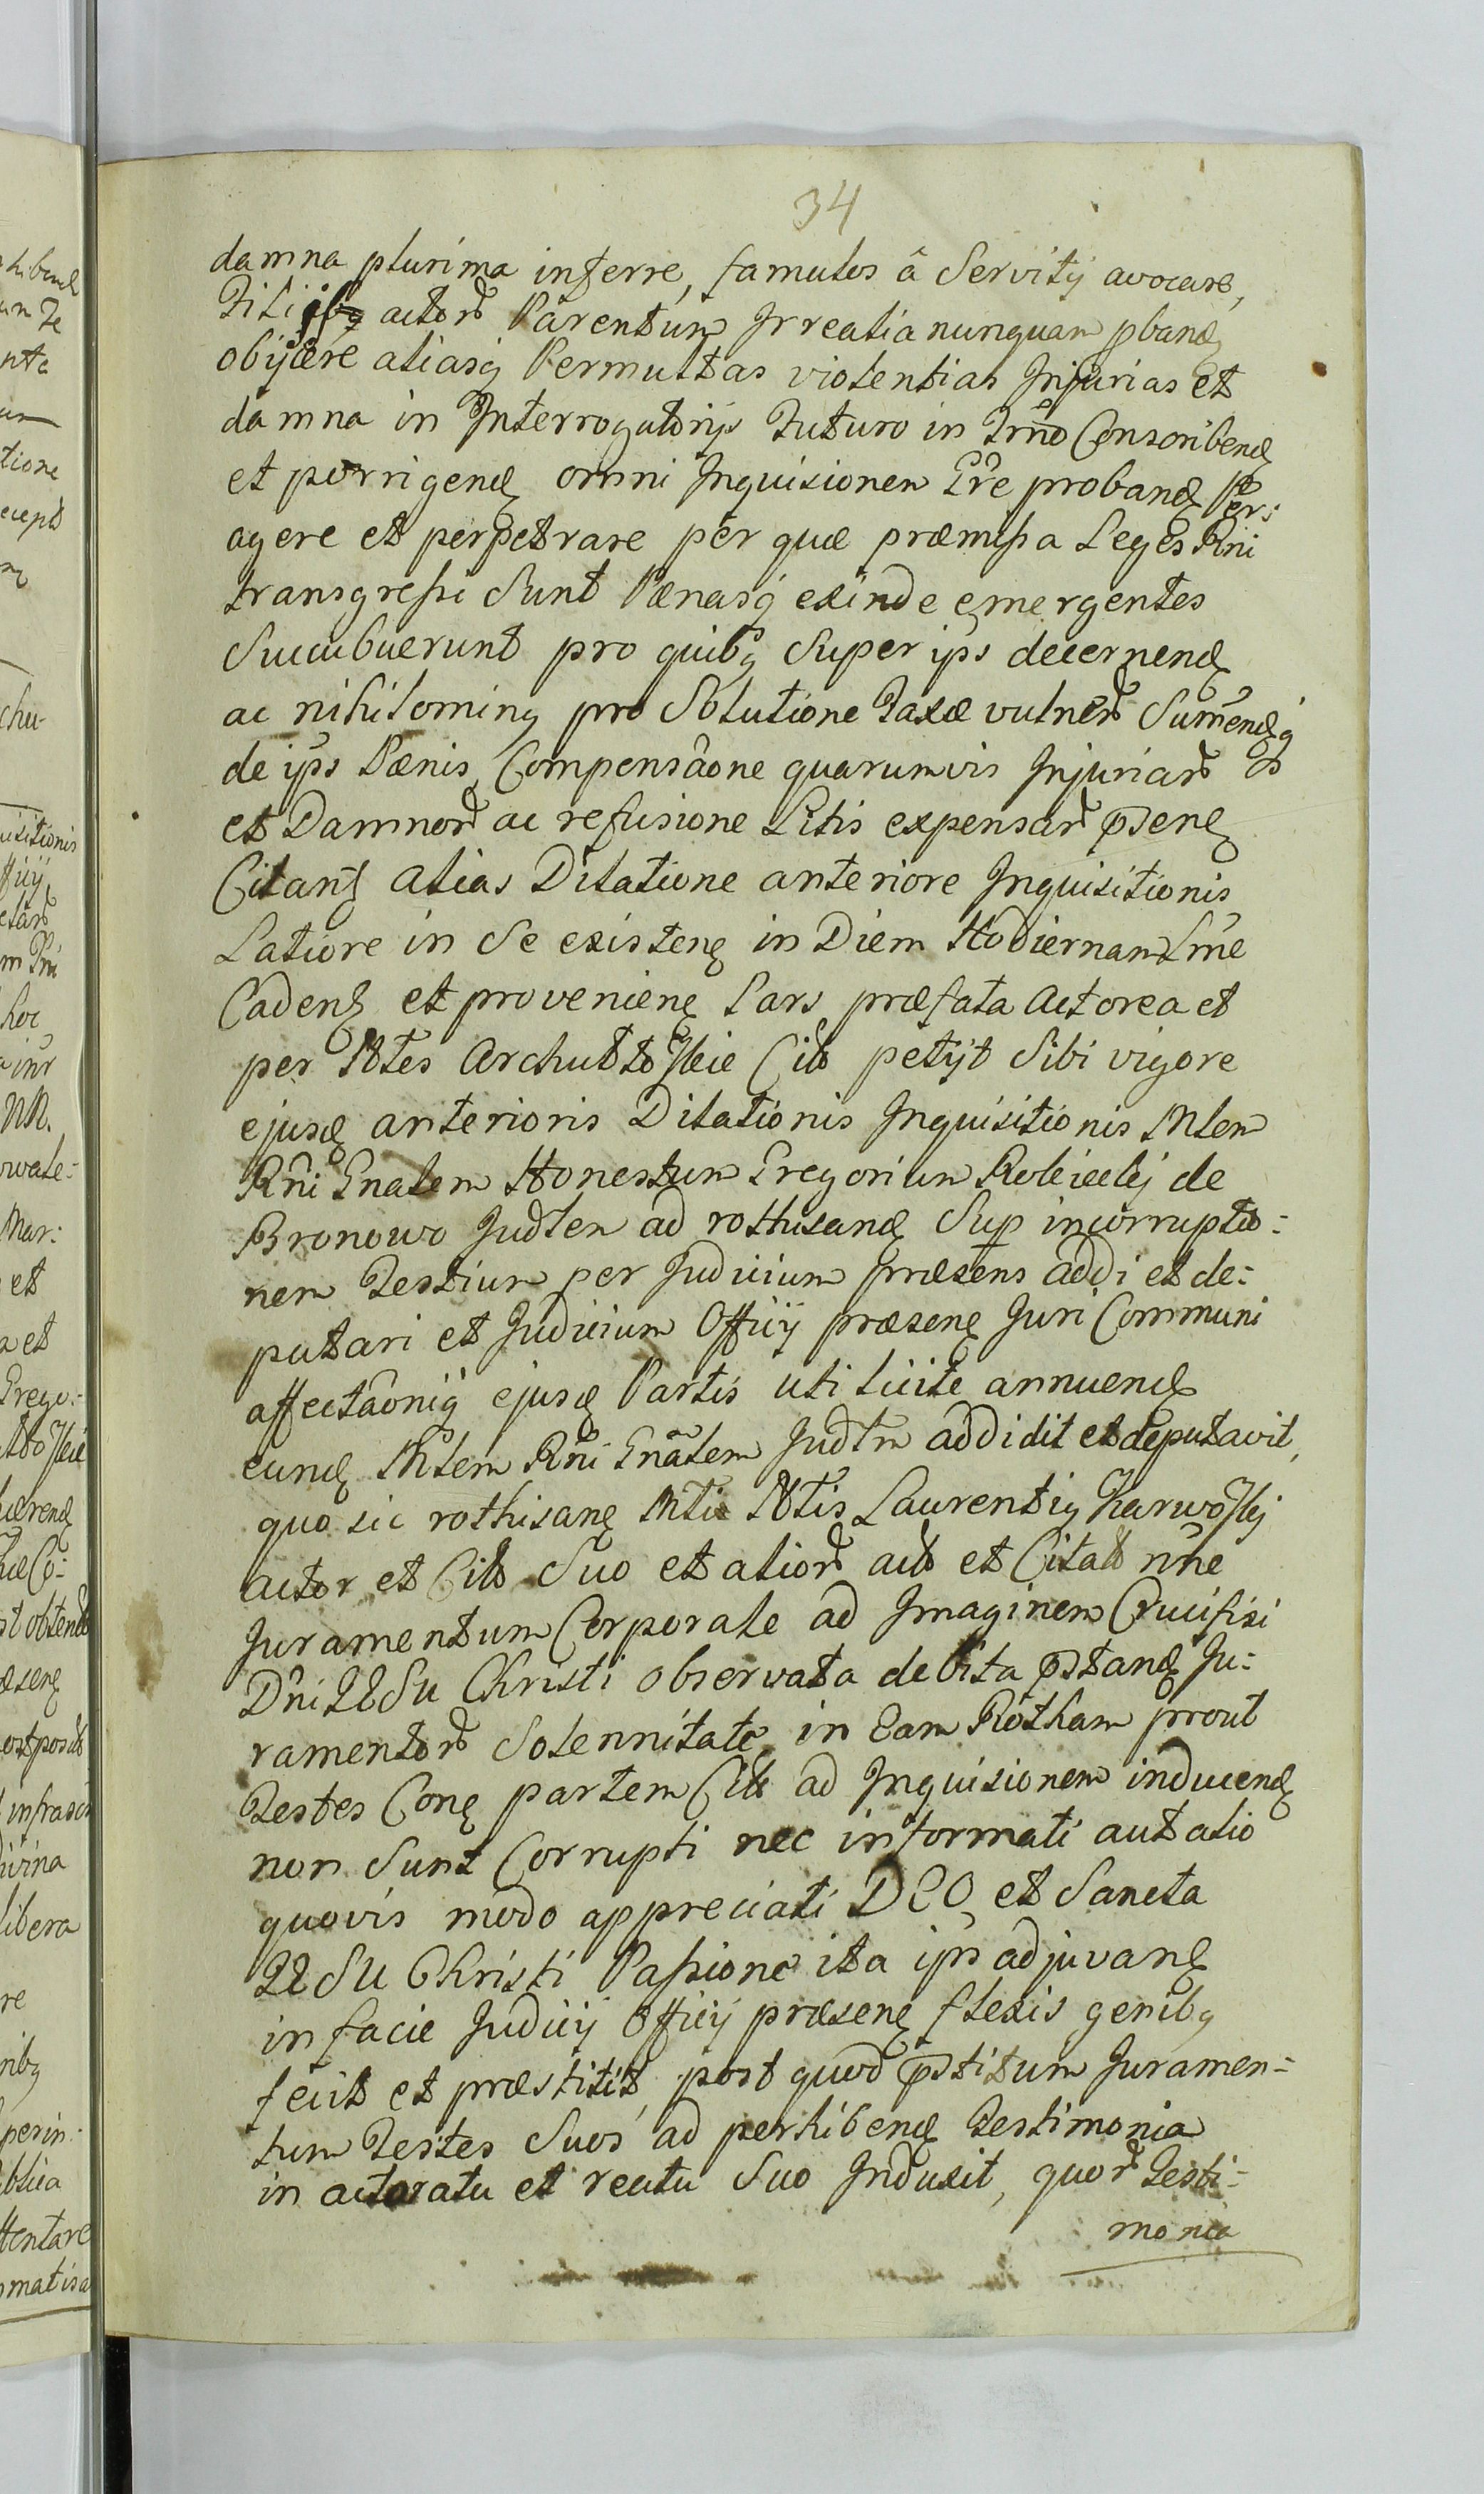 34
damna plurima inferre, famulos â Servitÿ avocare,
Filijsq actor Parentum Irreatia nunquam pband
obijcere aliasq Permultas violentias Injurias et
damna in Interrogatorijs Futuro in Trno Conscribend
et porrigend omni Inquisionem Gre proband Per:
agere et perpetrare per quæ præmissa Leges Rni
transgressi Sunt Pænasq exinde emergentes
Succubuerunt pro quibq Super ips decernend
ac nihilominq pro Solutione Taxæ vulner Sumendq
de ips Pænis, Compensaone quarumvis Injuriar
et Damnor ac refusione Litis expensar
Citant alias Dilatione anteriore Inquisitionis
Latiore in Se existen in Diem Hodiernam
Cadent et provenien Pars præfata Actorea et
per Cit petijt Sibi vigore
ejusd anterioris Dilationis Inquisitionis Mtem
Rni Gnalem Honestum Gregorium de
Bronowo Judtem ad rothisand Sup incorruptio:
nem Testium per Judicium præsens addi et de:
putari et Judicium Officij præsen Juri Communi
affectaoniq ejusd Partis uti licite annuend
eund Mtem Rni Gnalem Judtm addidit et deputavit,
quo sic rothisan Laurentiq Karwoski
actor et Citt Suo et alior act et Citat nne
Juramentum Corporale ad Imaginem Crucifixi
Dni IESu Christi observata debita pstand Ju:
ramentor Solennitate, in Eam Rotham prout
Testes Con partem Citt ad Inquisionem inducend
non Sunt Corrupti nec informati aut alio
quovis modo appreciati DEO, et Sancta
IESU Christi Passione ita ips adjuvan
in facie Judicij Officij præsen flexis genibq
fecit et præstitit, post quod pstitum Juramen:
tum Testes Suos ad perhibend Testimonia
in actoratu et reatu Suo Induxit, quor Testi:
monia